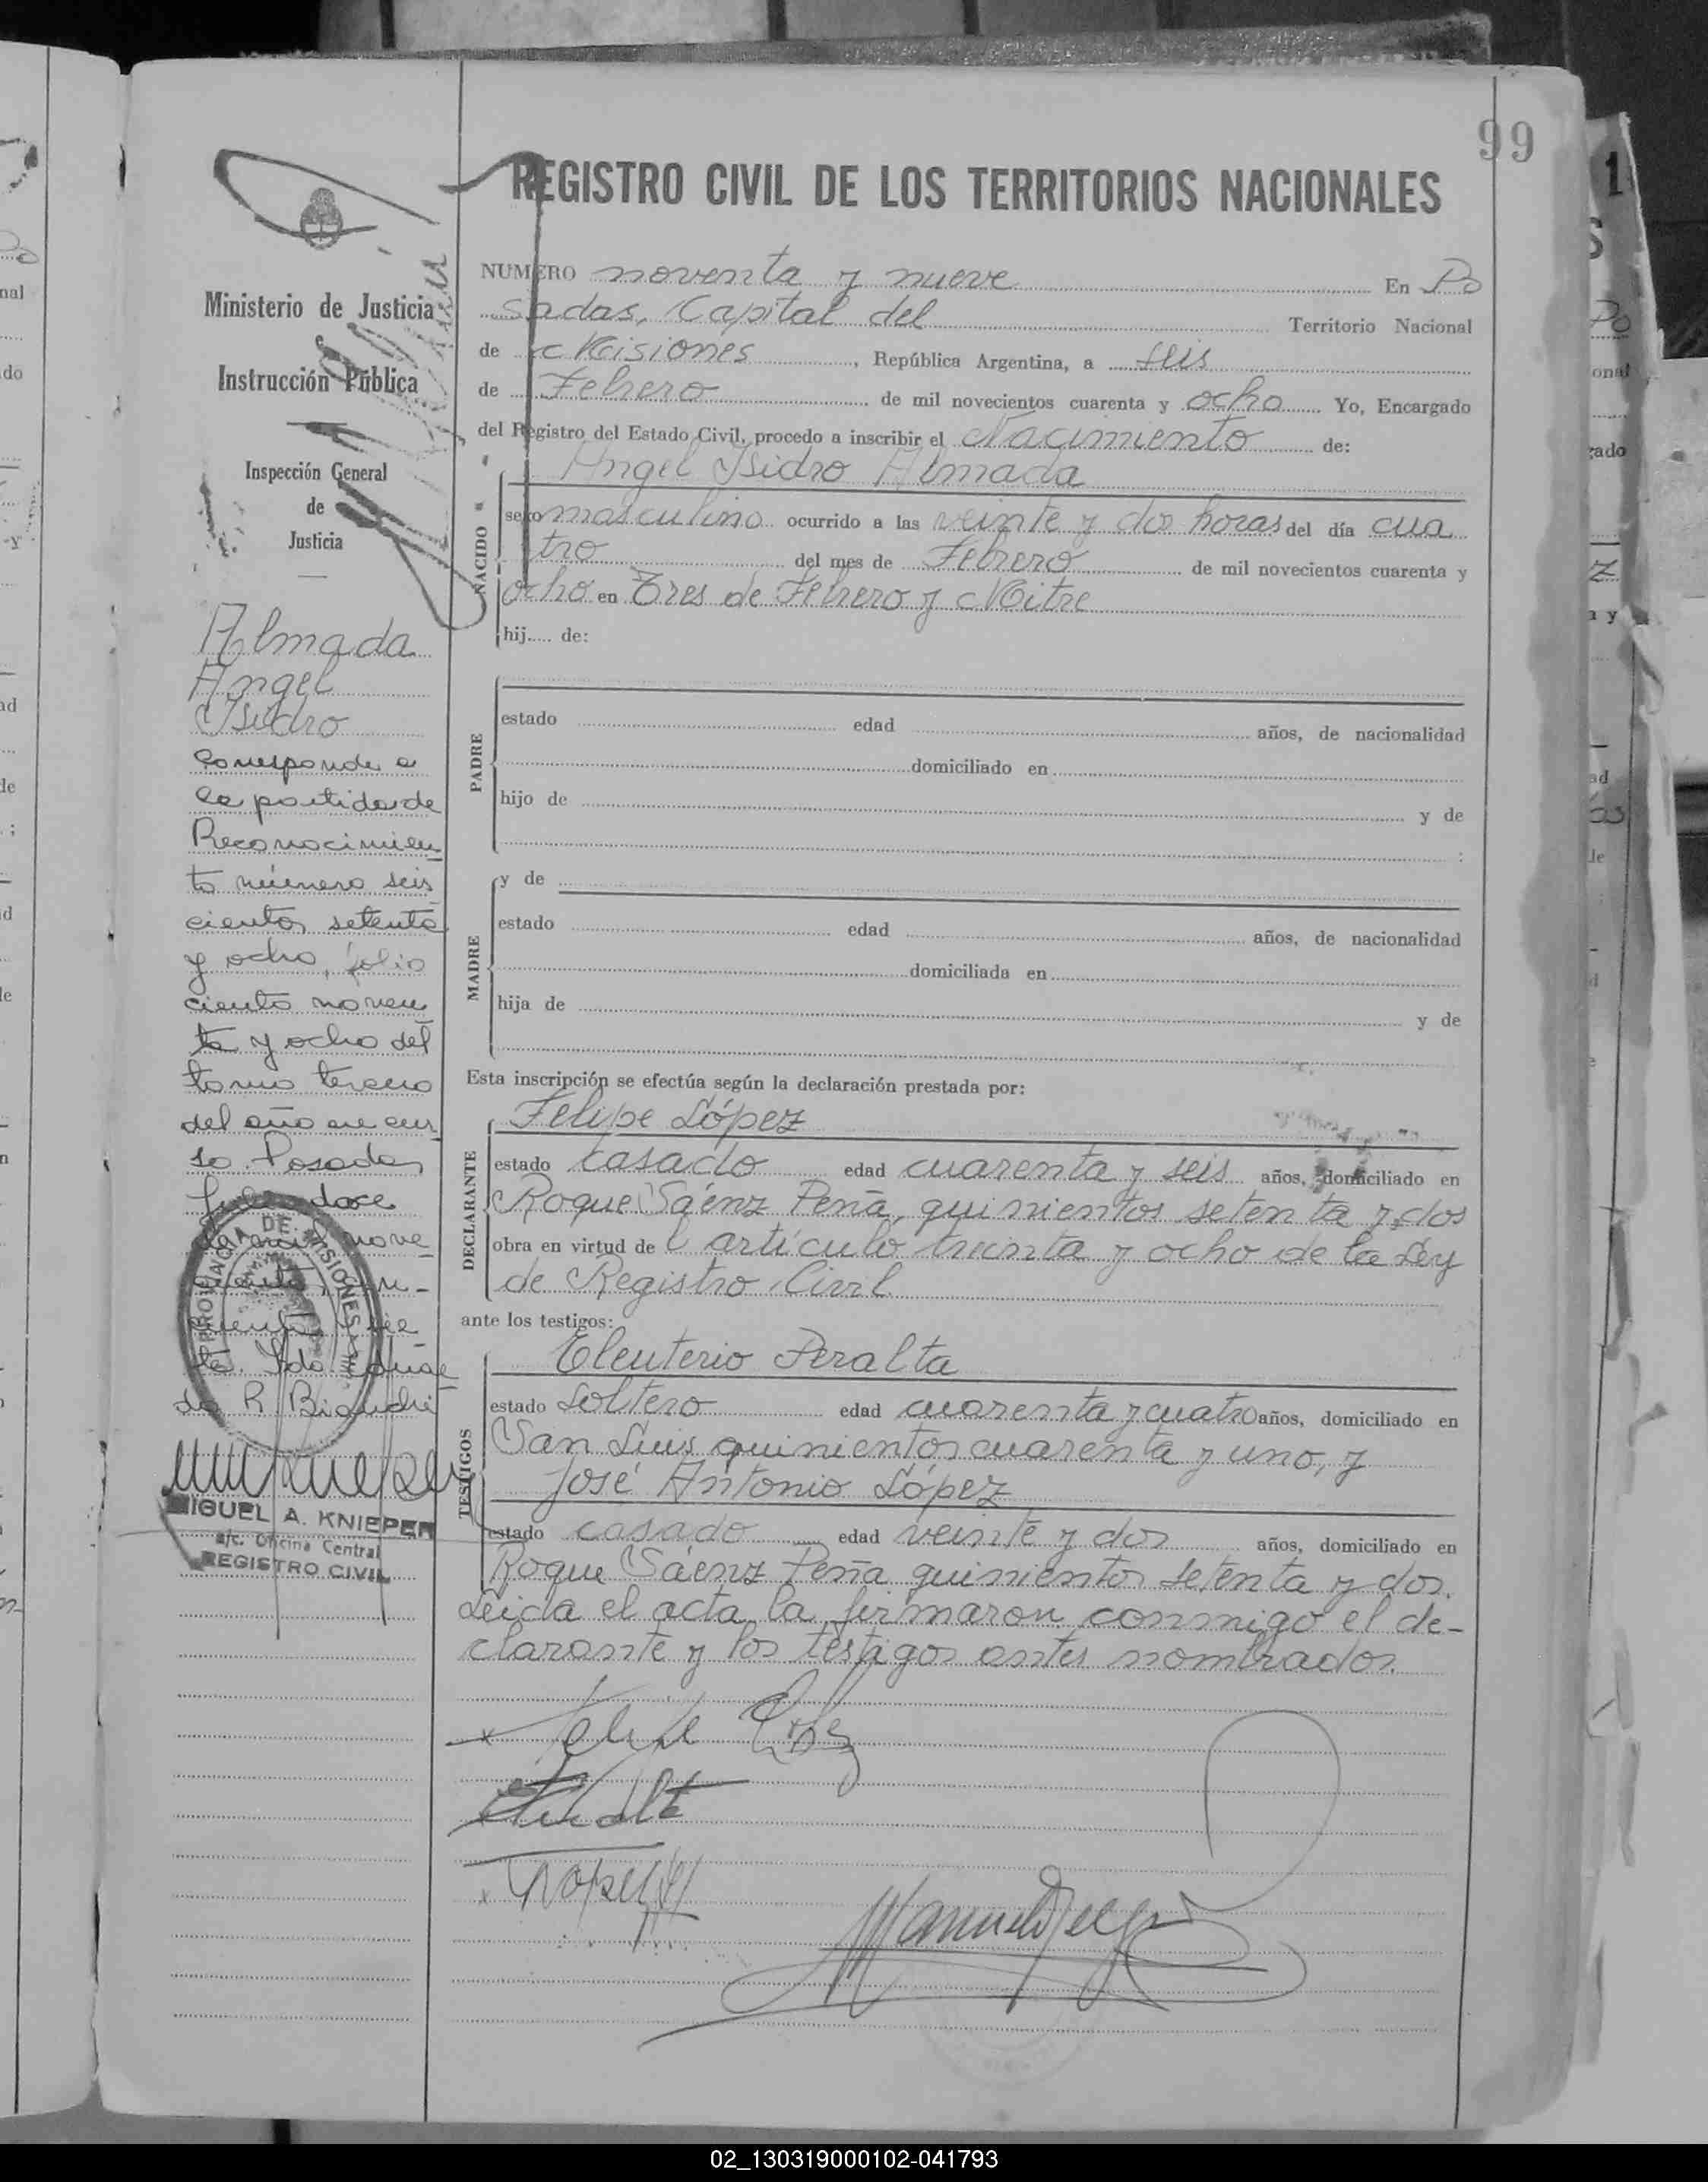 99
REGISTRO CIVIL DE LOS TERRITORIOS NACIONALES
Ministerio de Justicia
Instrucción Pública
Inspección General
de
Justicia
Almada
Angel
Isidro
Corresponde a
la partida de
Reconocimien
to número seis
cientos setenta
y ocho, folio
ciento noven
ta y ocho del
tomo tercero
del año en cur
so. Posadas,
doce
nove
R. Bianchi
PROVINCIA DE MISIONES
MIGUEL A. KNIEPER
a/c. Oficina Central
REGISTRO CIVIL
NUMERO noventa y nueve En Po
sadas, Capital del Territorio Nacional
de Misiones, República Argentina, a seis
de Febrero de mil novecientos cuarenta y ocho Yo, Encargado
del Registro del Estado Civil, procedo a inscribir el Nacimiento de:
NACIDO
Angel Isidro Almada
sexo masculino ocurrido a las veinte y dos horas del día cua
tro del mes de Febrero de mil novecientos cuarenta y
ocho en Tres de Febrero y Mitre
hij..... de:
PADRE
estado edad años, de nacionalidad
domiciliado en
hijo de y de
:
MADRE
y de
estado edad años, de nacionalidad
domiciliada en
hija de y de
Esta inscripción se efectúa según la declaración prestada por:
DECLARANTE
Felipe López
estado casado edad cuarenta y seis años, domiciliado en
Roque Sáenz Peña, quinientos setenta y dos
obra en virtud de l artículo treinta y ocho de la Ley
de Registro Civil
ante los testigos:
TESTIGOS
Eleuterio Peralta
estado soltero edad cuarenta y cuatro años, domiciliado en
San Luis quinientos cuarenta y uno, y
José Antonio López
estado casado edad veinte y dos años, domiciliado en
Roque Sáenz Peña quinientos setenta y dos.
Leida el acta la firmaron conmigo el de-
clarante y los testigos antes nombrados.
Felipe López
02_130319000102-041793